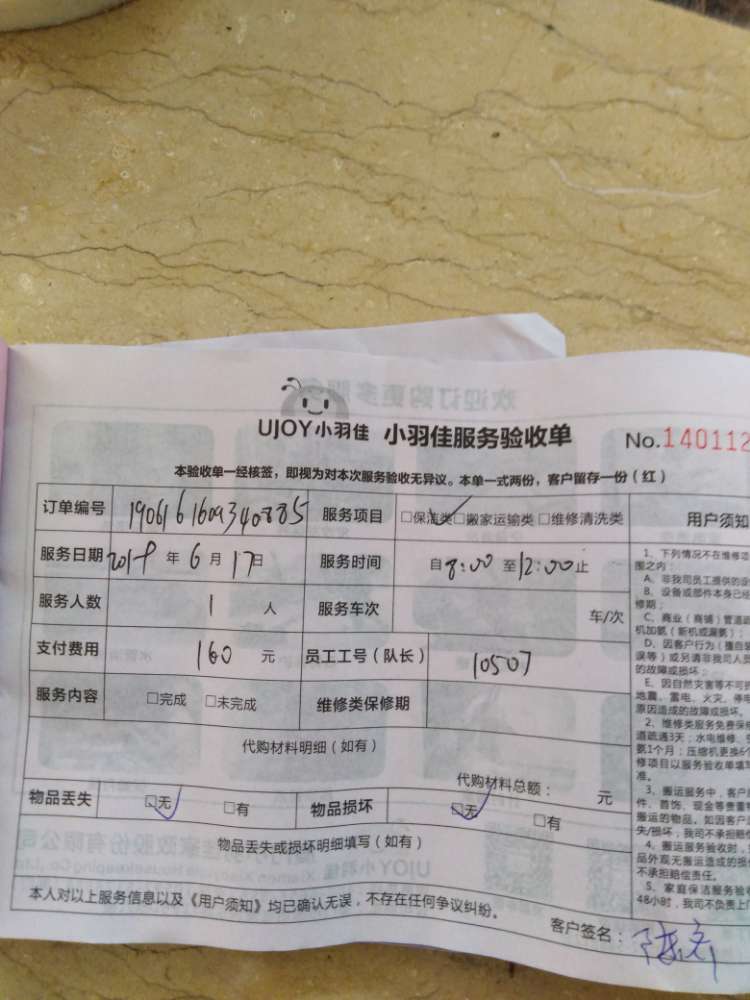 UJOY小羽佳 小羽佳服务验收单 No.140112
本验收单一经核签，即视为对本次服务验收无异议。本单一式两份，客户留存一份（红）
订单编号 190616160934088５ 服务项目 □保洁类□搬家运输类□维修清洗类
服务日期 2019年6月17日 服务时间 自8:00至12:00止
服务人数 1人 服务车次 车/次
支付费用 160元 员工工号（队长） 10507
服务内容 □完成 □未完成 维修类保修期
代购材料明细（如有）
代购材料总额： 元
物品丢失 □无 □有 物品损坏 □无 □有
物品丢失或损坏明细填写（如有）
本人对以上服务信息以及《用户须知》均已确认无误，不存在任何争议纠纷。
客户签名：
用户须知
1、下列情况不在维修范
围之内：
A、非我司员工提供的
B、设备或部件本身已经
修期；
C、商业（商铺）管道
机加氨（新机或漏氨）；
D、因客户行为（擅自
误等）或另请非我司人员
的故障或损坏；
E、因自然灾害等不可
地震、雷电、火灾、停电
原因造成的故障或损坏。
2、维修类服务免费保
道疏通3天；水电维修、
氨1个月；压缩机更换6个
修项目以服务验收单填写
准。
3、搬运服务中，客户
件、首饰、现金等贵重
搬运的物品。如因客户
失/损坏，我司不承担赔
4、搬运服务验收时，
品外观无搬运造成的损
不承担赔偿责任。
5、家庭保洁服务验收
48小时，我司不负责上门